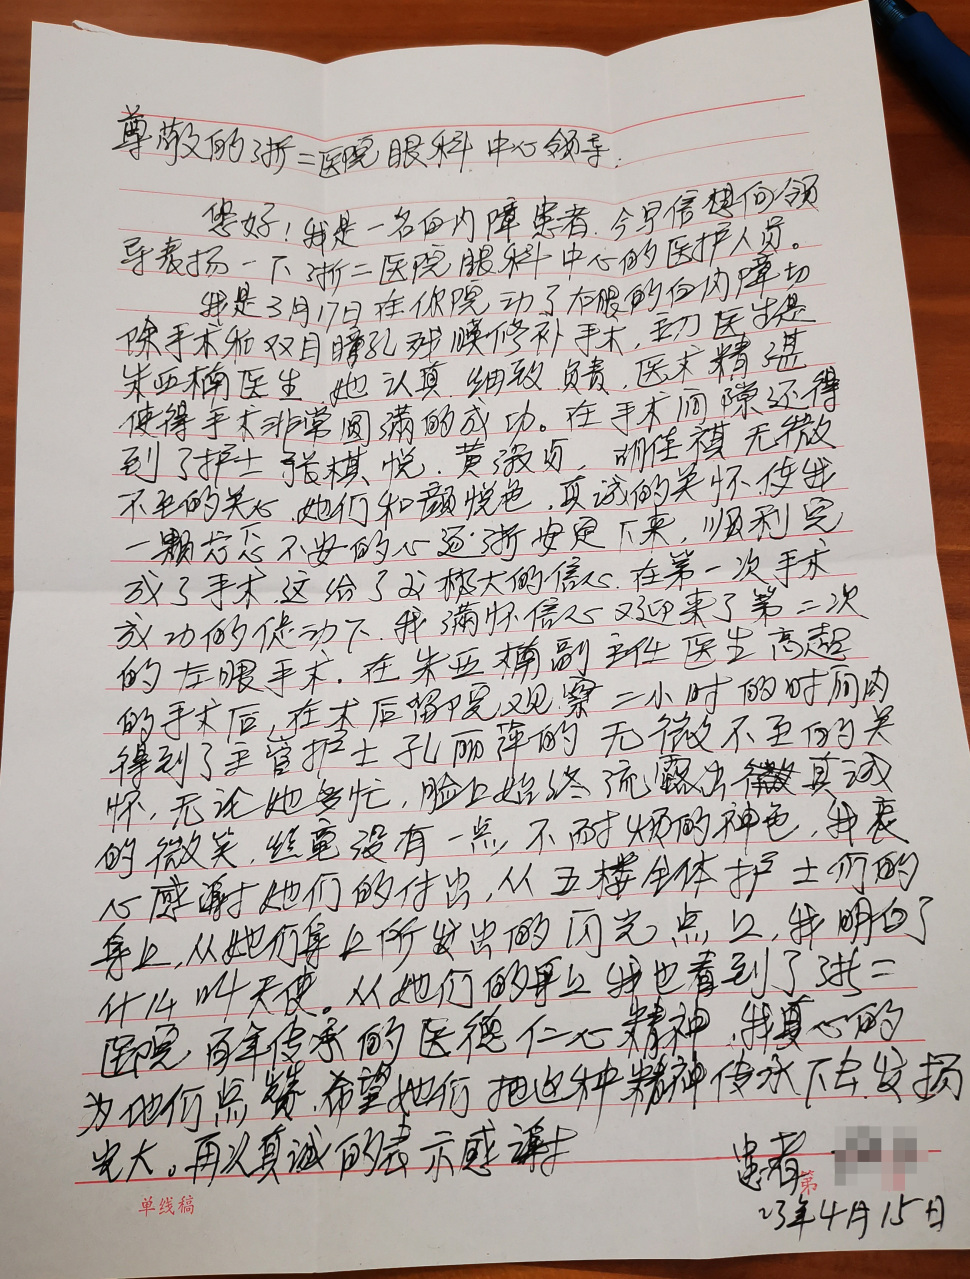 尊敬的浙二医院眼科中心领导.
您好!我是一名白内障患者.今写信想向领
导表扬一下浙二医院眼科中心的医护人员。
我是3月17日在你院动了右眼的白内障切
除手术和双目瞳孔残膜修补手术,主刀医生是
朱亚楠医生,她认真.细致.负责.医术精湛
使得手术非常圆满的成功。在手术间隙还得
到了护士张棋悦.黄淑贞,胡佳祺无微
不至的关心.她们和颜悦色,真诚的关怀.使我
一颗忐忑不安的心逐渐安定下来,顺利完
成了手术.这给了我极大的信心.在第一次手术
成功的促动下.我满怀信心又迎来了第二次
的左眼手术.在朱亚楠副主任医生高超
的手术后,在术后留院观察二小时的时间内
得到了主管护士孔丽萍的无微不至的关
怀,无论她多忙,脸上始终流露出微真诚
的微笑,丝毫没有一点不耐烦的神色,我衷
心感谢她们的付出,从五楼全体护士们的
身上,从她们身上所发出的闪光点上,我明白了
什么叫天使。从她们的身上我也看到了浙二
医院百年传承的医德仁心精神,我真心的
为她们点赞.希望她们把这种精神传承下去,发扬
光大。再次真诚的表示感谢
患者
第
23年4月15日
单线稿